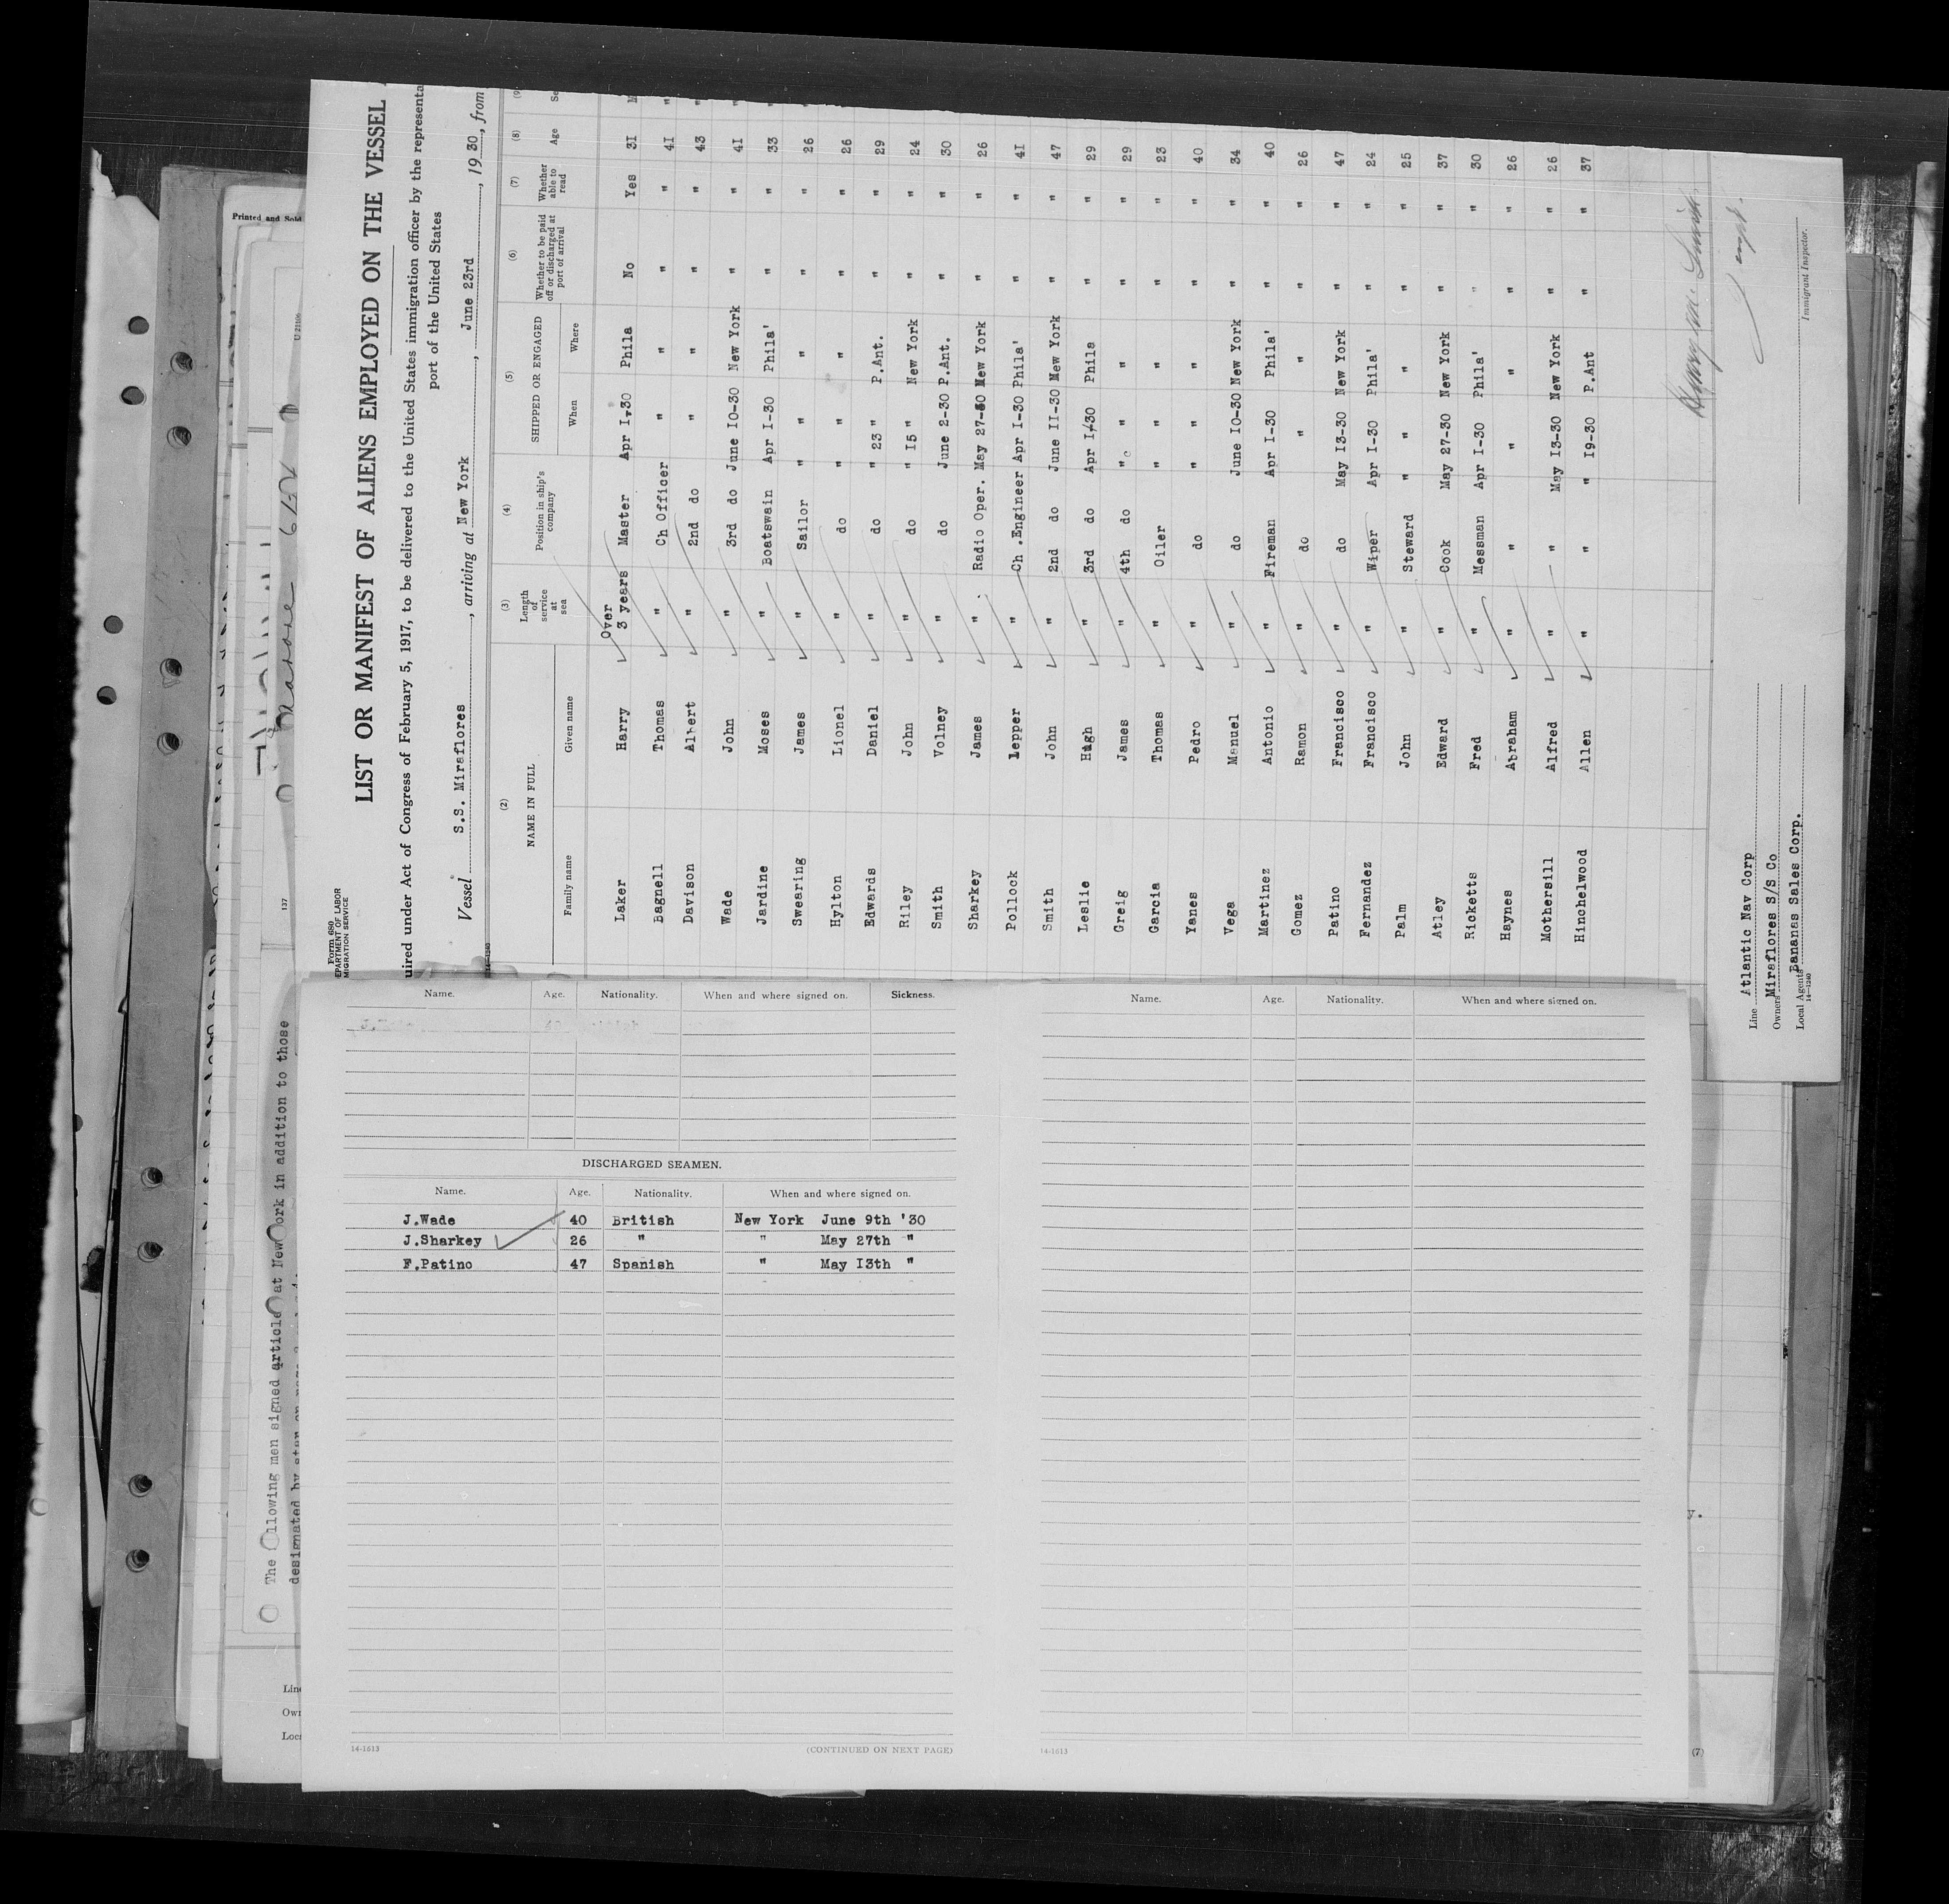 Form 680
MIGRATION SERVICE
LIST OR MANIFEST OF ALIENS EMPLOYED ON THE VESSEL
uired under Act of Congress of February 5, 1917, to be delivered to the United States immigration officer by the representa
port of the United States
Vessel S.S. Miraflores, arriving at New York, June 23rd, 1930, from
(2) (3) (4) (5) (6) (7) (8)
NAME IN FULL Length of service at sea Position in ship's company SHIPPED OR ENGAGED Whether to be paid off or discharged at port of arrival Whether able to read Age
Family name Given name When Where
Laker Harry Over 3 years Master Apr 1-30 Phila No Yes 31
Bagnell Thomas " Ch Officer " " " " 41
Davison Albert " 2nd do " " " " 43
Wade John " 3rd do June 10-30 New York " " 41
Jardine Moses " Boatswain Apr 1-30 Phila' " " 33
Swearing James " Sailor " " " " " 26
Hylton Lionel " do " " " " " 26
Edwards Daniel " do " 23 " P.Ant. " " 29
Riley John " do " 15 " New York " " 24
Smith Volney " do June 2-30 P.Ant. " " 30
Sharkey James " Radio Oper. May 27-30 New York " " 26
Pollock Lepper " Ch .Engineer Apr 1-30 Phila' " " 41
Smith John " 2nd do June 11-30 New York " " 47
Leslie Hugh " 3rd do Apr 1-30 Phila " " 29
Greig James " 4th do " " " " " 29
Garcia Thomas " Oiler " " " " " 23
Yanes Pedro " do " " " " " 40
Vega Manuel " do June 10-30 New York " " 34
Martinez Antonio " Fireman Apr 1-30 Phila' " " 40
Gomez Ramon " do " " " " 26
Patino Francisco " do May 13-30 New York " " 47
Fernandez Francisco " Wiper Apr 1-30 Phila' " " 24
Palm John " Steward " " " " " 25
Atley Edward " Cook May 27-30 New York " " 37
Ricketts Fred " Messman Apr 1-30 Phila' " " 30
Haynes Abraham " " " " " " 26
Mothersill Alfred " " May 13-30 New York " " 26
Hinchelwood Allen " " " 19-30 P.Ant " " 37
Line Atlantic Nav Corp
Owners Miraflores S/S Co
Local Agents Bananas Sales Corp.
14-1240
Immigrant Inspector.
Printed and Sold
137
The llowing men signed article at New ork in addition to those
Name. Age. Nationality. When and where signed on. Sickness.
DISCHARGED SEAMEN.
Name. Age. Nationality. When and where signed on.
J.Wade 40 British New York June 9th '30
J.Sharkey 26 " " May 27th "
F.Patino 47 Spanish " May 13th "
14-1613 (CONTINUED ON NEXT PAGE)
Name. Age. Nationality. When and where signed on.
14-1613 (7)